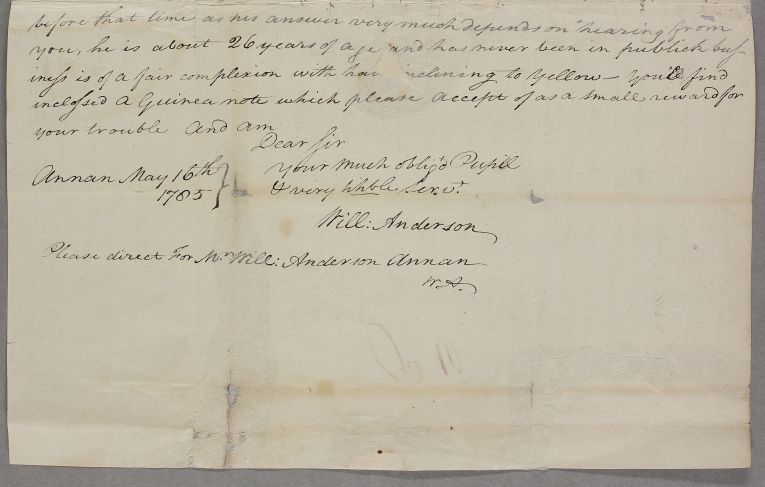 before that time as his answer very much depends on hearing from
you, he is about 26 years of age and has never been in publick bus
iness is of a fair complexion with hair inclining to Yellow — You'll find
inclosed a Guinea note which please accept of as a small reward for
your trouble and am
Dear Sir
Your much oblig'd Pupill
& very hble Serv.t
Annan May 16th
1785
Will: Anderson
Please direct For Mr. Will: Anderson Annan
W.A.